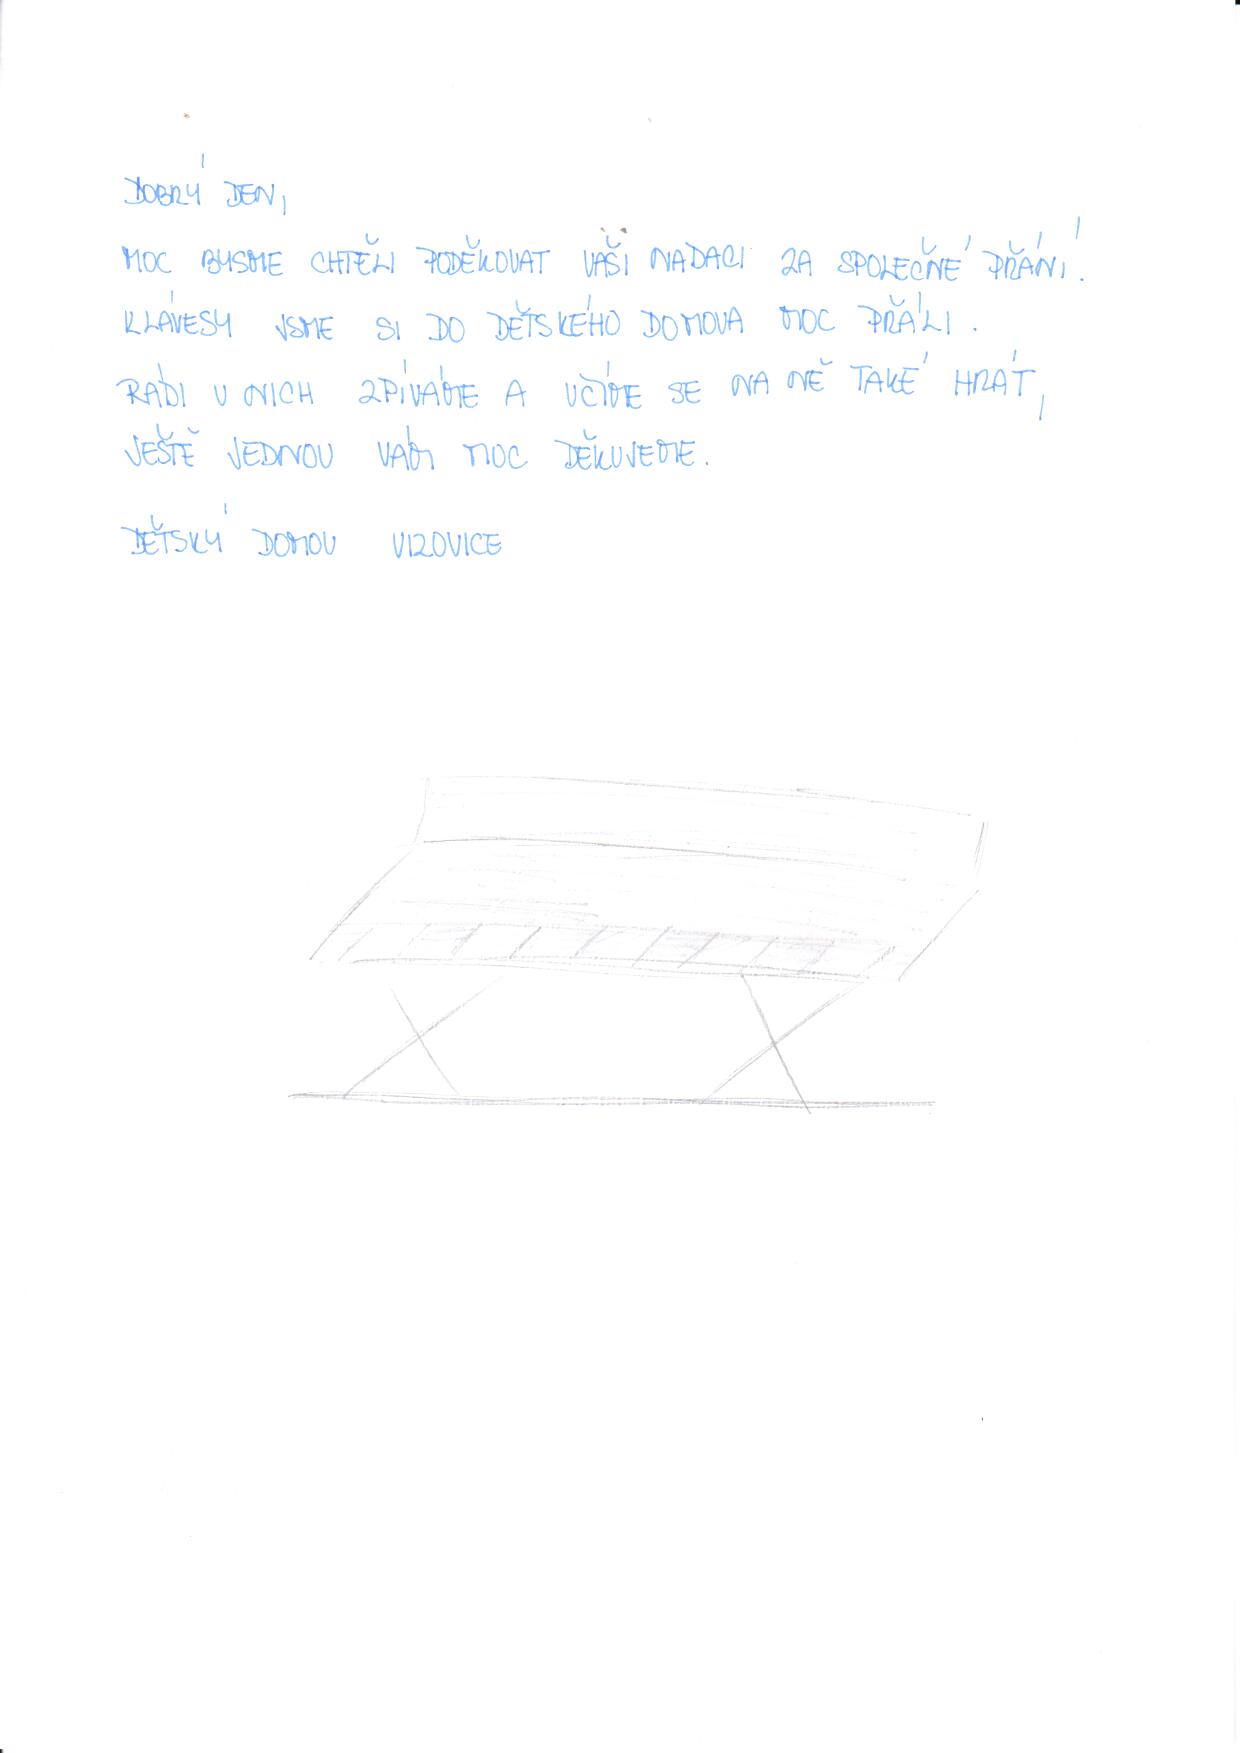 DOBRÝ DEN,
MOC BYSME CHTĚLI PODĚKOVAT VAŠÍ NADACI ZA SPOLEČNÉ PŘÁNÍ.
KLÁVESY JSME SI DO DĚTSKÉHO DOMOVA MOC PŘÁLI.
RÁDI U NICH ZPÍVÁME A UČÍME SE NA NĚ TAKÉ HRÁT,
JEŠTĚ JEDNOU VÁM MOC DĚKUJEME.
DĚTSKÝ DOMOV VIZOVICE